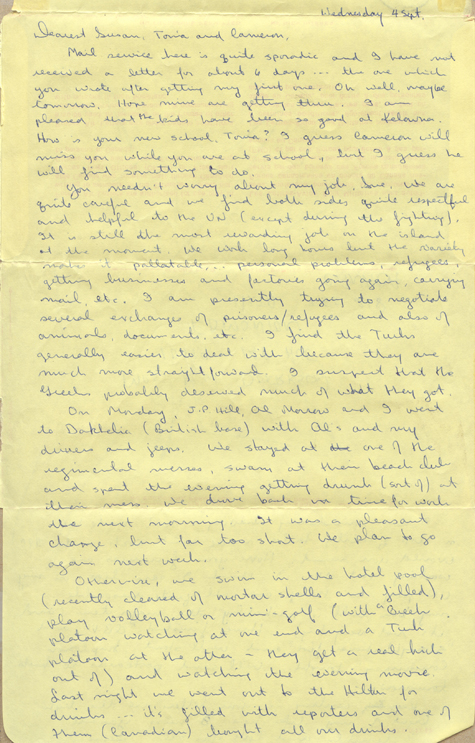 Wednesday 4 Sept.
Dearest Susan, Tonia and Cameron,
Mail service here is quite sporadic and I have not
received a letter for about 6 days... the one which
you wrote after getting my first one. Oh well, maybe
tomorrow. Hope mine are getting thru. I am
pleased that the kids have been so good at Kelowna.
How is your new school, Tonia? I guess Cameron will
miss you while you are at school, but I guess he
will find something to do.
You needn't worry about my job, Sue. We are
quite careful and we find both sides quite respectful
and helpful to the UN (except during the fighting).
It is still the most rewarding job on the island
at the moment. We work long hours but the variety
makes it pallatable... personal problems, refugees,
getting businesses and factories going again, carrying
mail, etc. I am presently trying to negotiate
several exchanges of prisoners/refugees and also of
animals, documents, etc. I find the Turks
generally easier to deal with because they are
much more straightforward. I suspect that the
Greeks probably deserved much of what they got.
On Monday, J.P. Hell, Al Morrow and I went
to Dakhelia (British base) with Al's and my
drivers and jeeps. We stayed at one of the
regimental messes, swam at their beach club
and spent the evening getting drunk (sort of) at
their mess. We drove back in time for work
the next morning. It was a pleasant
change, but far too short. We plan to go
again next week.
Otherwise, we swim in the hotel pool
(recently cleared of mortar shells and filled),
play volleyball or mini-golf (with a Greek
platoon watching at one end and a Turk
platoon at the other - they get a real kick
out of) and watching the evening movie.
Last night we went out to the Hilton for
drinks... it's filled with reporters and one of
them (Canadian) bought all our drinks.